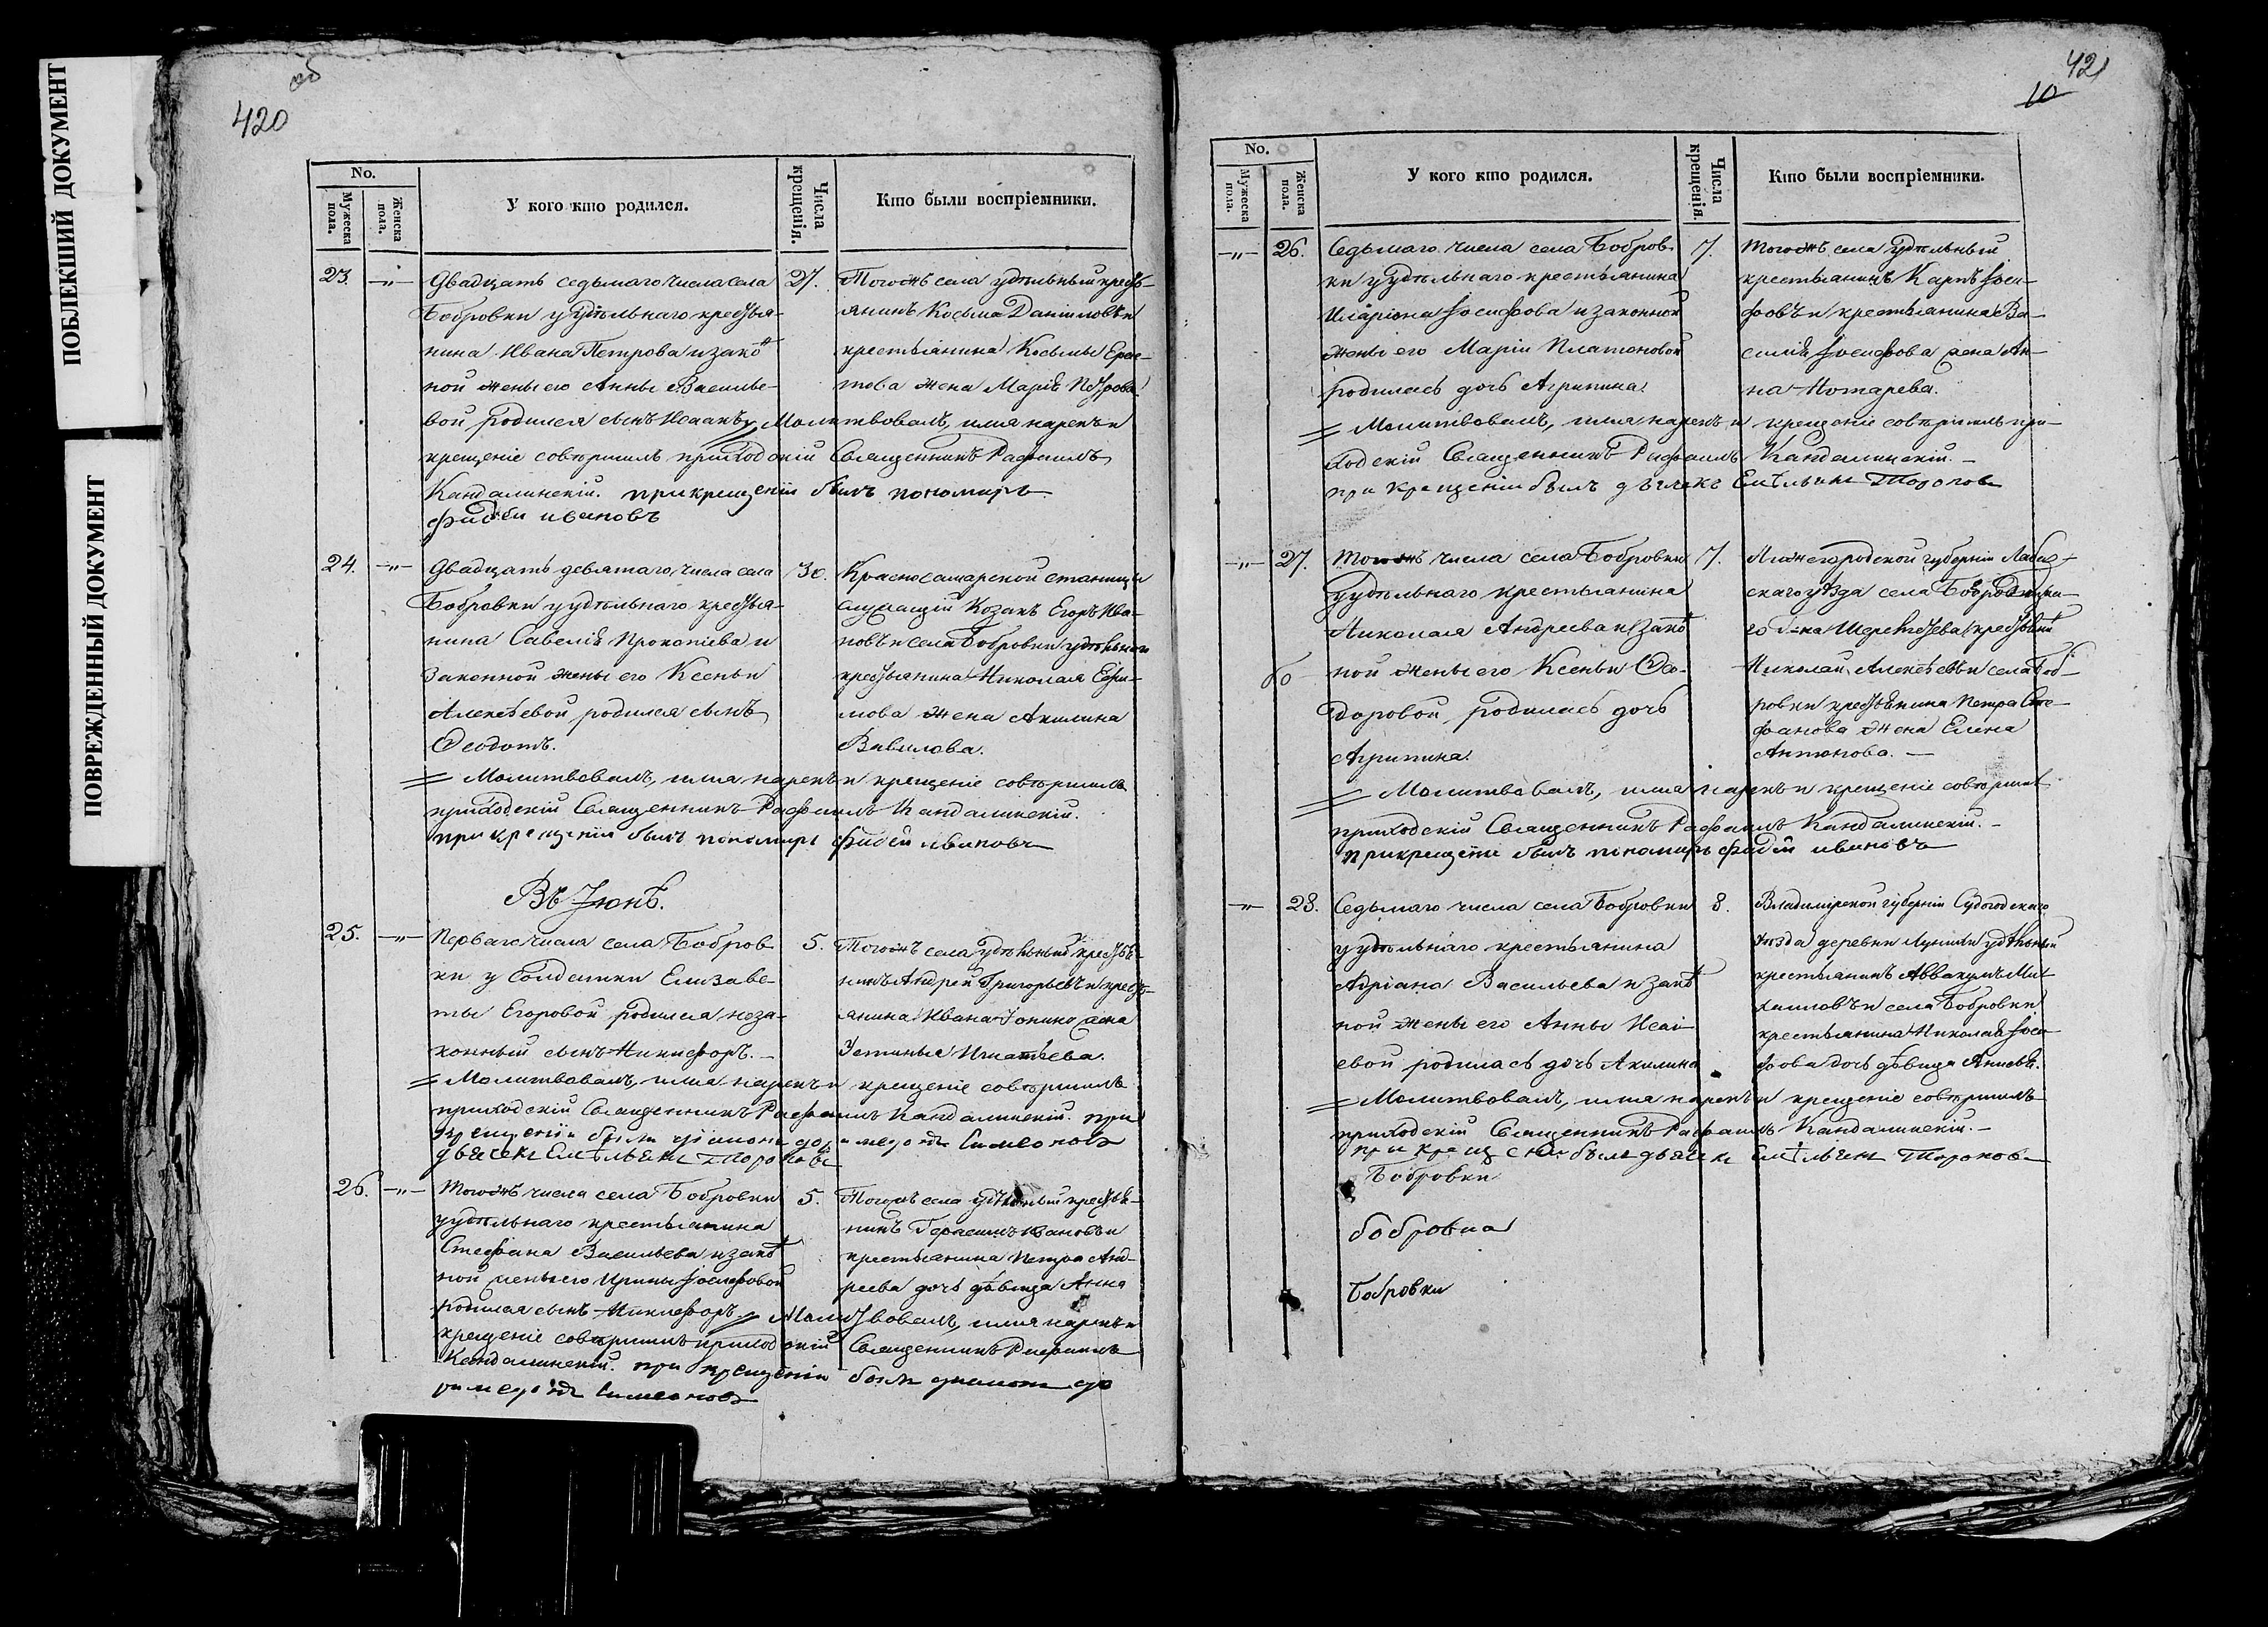 ПОБЛЕКШИЙ ДОКУМЕНТ
ПОВРЕЖДЕННЫЙ ДОКУМЕНТ
об
420
No.
Мужеска пола.
Женска пола.
У кого кто родился.
Числа крещенія.
Кто были воспріемники.
23.
Двадцать седьмаго числа села
Бобровки у удѣльнаго крестья-
нина Ивана Петрова и закон
ной жены его Анны Василье-
вой родился сынъ Исаакъ
27.
Тогожъ села удѣльный кресть-
янинъ Косьма Даніиловъ и
крестьянина Косьмы
жена Марія Петрова
Молитвовалъ, имя нарекъ и
крещеніе совершилъ приходскій Священникъ Рафаилъ
Кандалинскій. при крещеніи былъ пономарь
фадѣй ивановъ
24.
Двадцать девятаго числа села
Бобровки у удѣльнаго крестья-
нина Савелія Прокопіева и
законной жены его Ксеньи
Алексѣевой родился сынъ
Ѳеодотъ.
30.
Красносамарской станицы
служащій Козакъ Егоръ Ива-
новъ и села Бобровки удѣльнаго
крестьянина Николая Ефи-
мова жена Акилина
Вавилова.
Молитвовалъ, имя нарекъ и крещеніе совершилъ
приходскій Священникъ Рафаилъ Кандалинскій.
при крещеніи былъ пономарь фадѣй ивановъ
Въ Іюнѣ.
25.
Перваго числа села Бобров-
ки у Солдатки Елизаве-
ты Егоровой родился неза-
конный сынъ Никифоръ.
5.
Тогожъ села удѣльный крестья-
нинъ Андрей Григорьевъ и кресть-
янина Ивана Іонина жена
Устинья Игнатьева.
Молитвовалъ, имя нарекъ и крещеніе совершилъ
приходскій Священникъ Рафаилъ Кандалинскій. при
крещеніи были
дьячекъ Емѣльянъ Тороповъ
26.
Тогожъ числа села Бобровки
у удѣльнаго крестьянина
Стефана Васильева и закон
ной жены его Ирины Іосифовой
родился сынъ Никифоръ
5.
Тогожъ села удѣльный крестья-
нинъ Герасимъ Ивановъ и
крестьянина Петра Анд-
реева дочь дѣвица Анна
Молитвовалъ, имя нарекъ и
крещеніе совершилъ приходскій Священникъ Рафаилъ
Кандалинскій. при крещеніи былъ
Симеоновъ
421
10
No.
Мужеска пола.
Женска пола.
У кого кто родился.
Числа крещенія.
Кто были воспріемники.
26.
Седьмаго числа села Бобров-
ки у удѣльнаго крестьянина
Иларіона Іосифова и законной
жены его Маріи Платоновой
родилась дочь Агрипина.
7.
Тогожъ села удѣльный
крестьянинъ Карпъ Іоси-
фовъ и крестьянина Ва-
силія Іосифова жена Ан-
на
Молитвовалъ, имя нарекъ и крещеніе совершилъ при-
ходскій Священникъ Рафаилъ Кандалинскій.
при крещеніи былъ дьячекъ Емѣльянъ Тороповъ
27.
Тогожъ числа села Бобровки
у удѣльнаго крестьянина
Николая Андреева и закон
ной жены его Ксеньи Ѳео-
доровой, родилась дочь
Агрипина.
7.
Нижегородской губерніи
скаго уѣзда села
Г-на Шереметева крестьянинъ
Николай Алексѣевъ и села Боб-
ровки крестьянина Петра Сте-
фанова жена Елена
Антонова.
Молитвовалъ, имя нарекъ и крещеніе совершилъ
приходскій Священникъ Рафаилъ Кандалинскій.
при крещеніи былъ пономарь фадѣй ивановъ
28.
Седьмаго числа села Бобровки
у удѣльнаго крестьянина
Адріана Васильева и закон
ной жены его Анны Исаі-
евой родилась дочь Акилина
8.
Владимірской губерніи Судогодскаго
уѣзда деревни удѣльный
крестьянинъ Аввакумъ Ми-
хаиловъ и села Бобровки
крестьянина Николая Іоси-
фова дочь дѣвица Анисья.
Молитвовалъ, имя нарекъ и крещеніе совершилъ
приходскій Священникъ Рафаилъ Кандалинскій.
при крещеніи былъ дьячекъ Емѣльянъ Тороповъ
Бобровки
бобровка
Бобровки